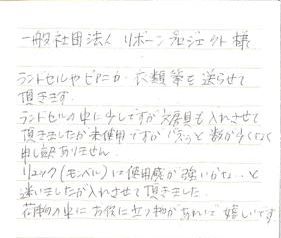 一般社団法人 リボーンプロジェクト 様
ランドセルやピアニカ、衣類等を送らせて
頂きます。
ランドセルの中に少しですが文房具も入れさせて
頂きましたが未使用ですが 数が少なく
申し訳ありません。
リュック(モンベル)は使用感が強いかな…と
迷いましたが入れさせて頂きました。
荷物の中にお役に立つ物があれば嬉しいです